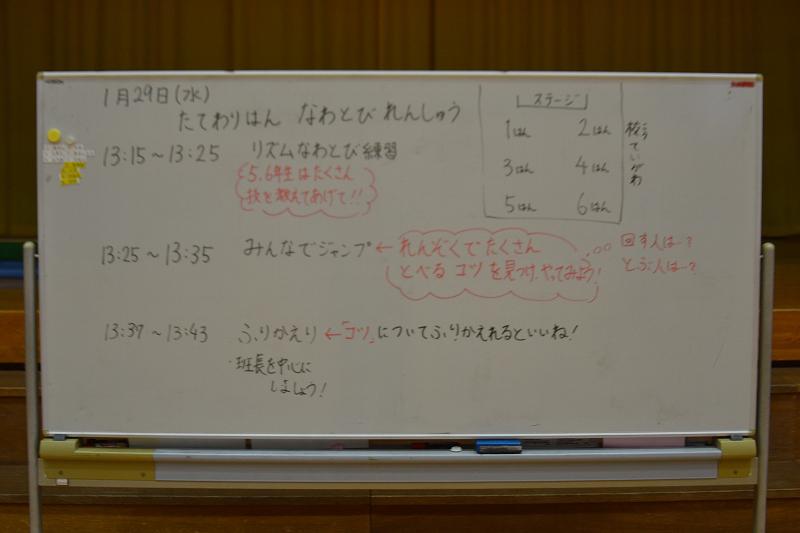 1月29日(水)
たてわりはん なわとび れんしゅう
13:15～13:25 リズムなわとび練習
5.6年生はたくさん
技を教えてあげて!!
13:25～13:35 みんなでジャンプ ← れんぞくでたくさん
とべる コツ を見つけ、やってみよう!
回す人は…?
とぶ人は…?
13:37～13:43 ふりかえり ←「コツ」についてふりかえれるといいね!
・班長を中心に
しましょう!
ステージ
1はん 2はん
3はん 4はん
5はん 6はん
校ていがわ